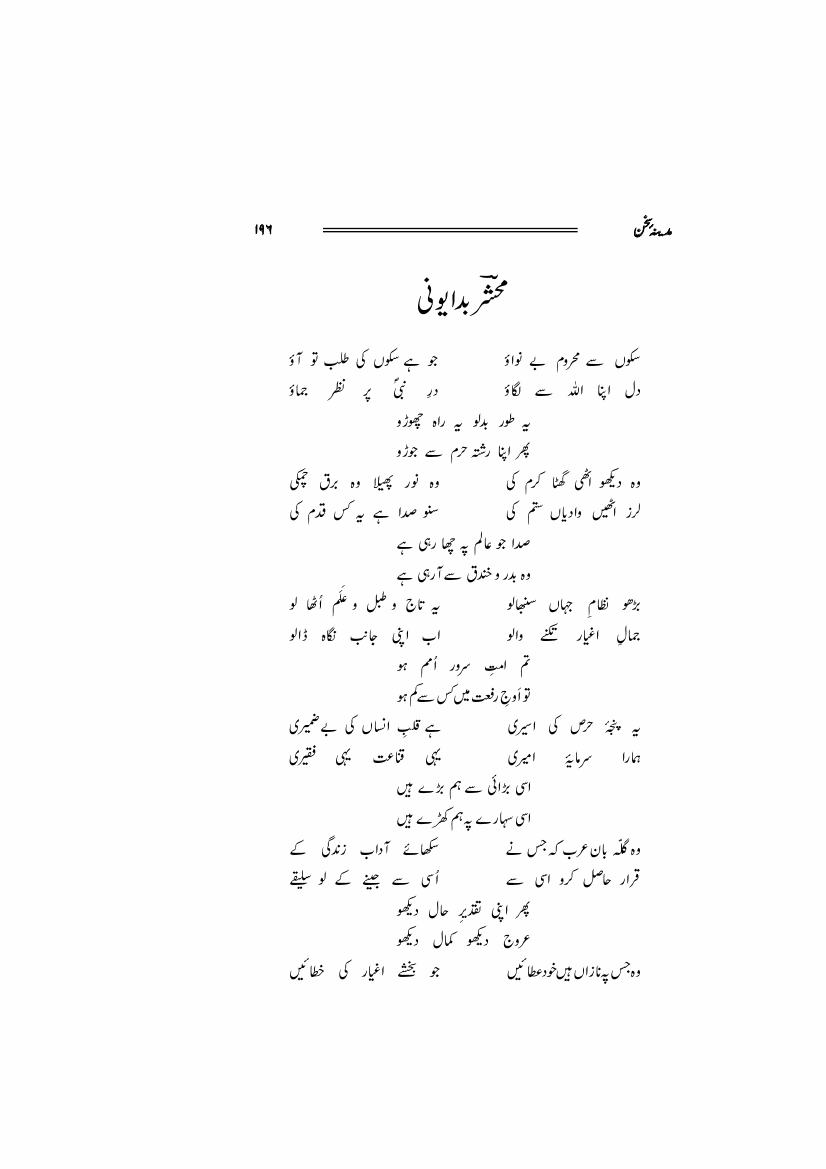 مدینۂ سخن ۱۹۶
محشرؔ بدایونی
سکوں سے محروم بے نواؤ جو ہے سکوں کی طلب تو آؤ
دل اپنا اللہ سے لگاؤ درِ نبیؐ پر نظر جماؤ
یہ طور بدلو یہ راہ چھوڑو
پھر اپنا رشتہ حرم سے جوڑو
وہ دیکھو اٹھی گھٹا کرم کی وہ نور پھیلا وہ برق چمکی
لرز اٹھیں وادیاں ستم کی سنو صدا ہے یہ کس قدم کی
صدا جو عالم پہ چھا رہی ہے
وہ بدر و خندق سے آرہی ہے
بڑھو نظامِ جہاں سنبھالو یہ تاج و طبل و عَلَم اُٹھا لو
جمالِ اغیار تکنے والو اب اپنی جانب نگاہ ڈالو
تم امتِ سرور اُمم ہو
تو اَوجِ رفعت میں کس سے کم ہو
یہ پنجۂ حرص کی اسیری ہے قلبِ انساں کی بے ضمیری
ہمارا سرمایۂ امیری یہی قناعت یہی فقیری
اسی بڑائی سے ہم بڑے ہیں
اسی سہارے پہ ہم کھڑے ہیں
وہ گلّہ بان عرب کہ جس نے سکھائے آداب زندگی کے
قرار حاصل کرو اسی سے اُسی سے جینے کے لو سلیقے
پھر اپنی تقدیرِ حال دیکھو
عروج دیکھو کمال دیکھو
وہ جس پہ نازاں ہیں خود عطائیں جو بخشے اغیار کی خطائیں